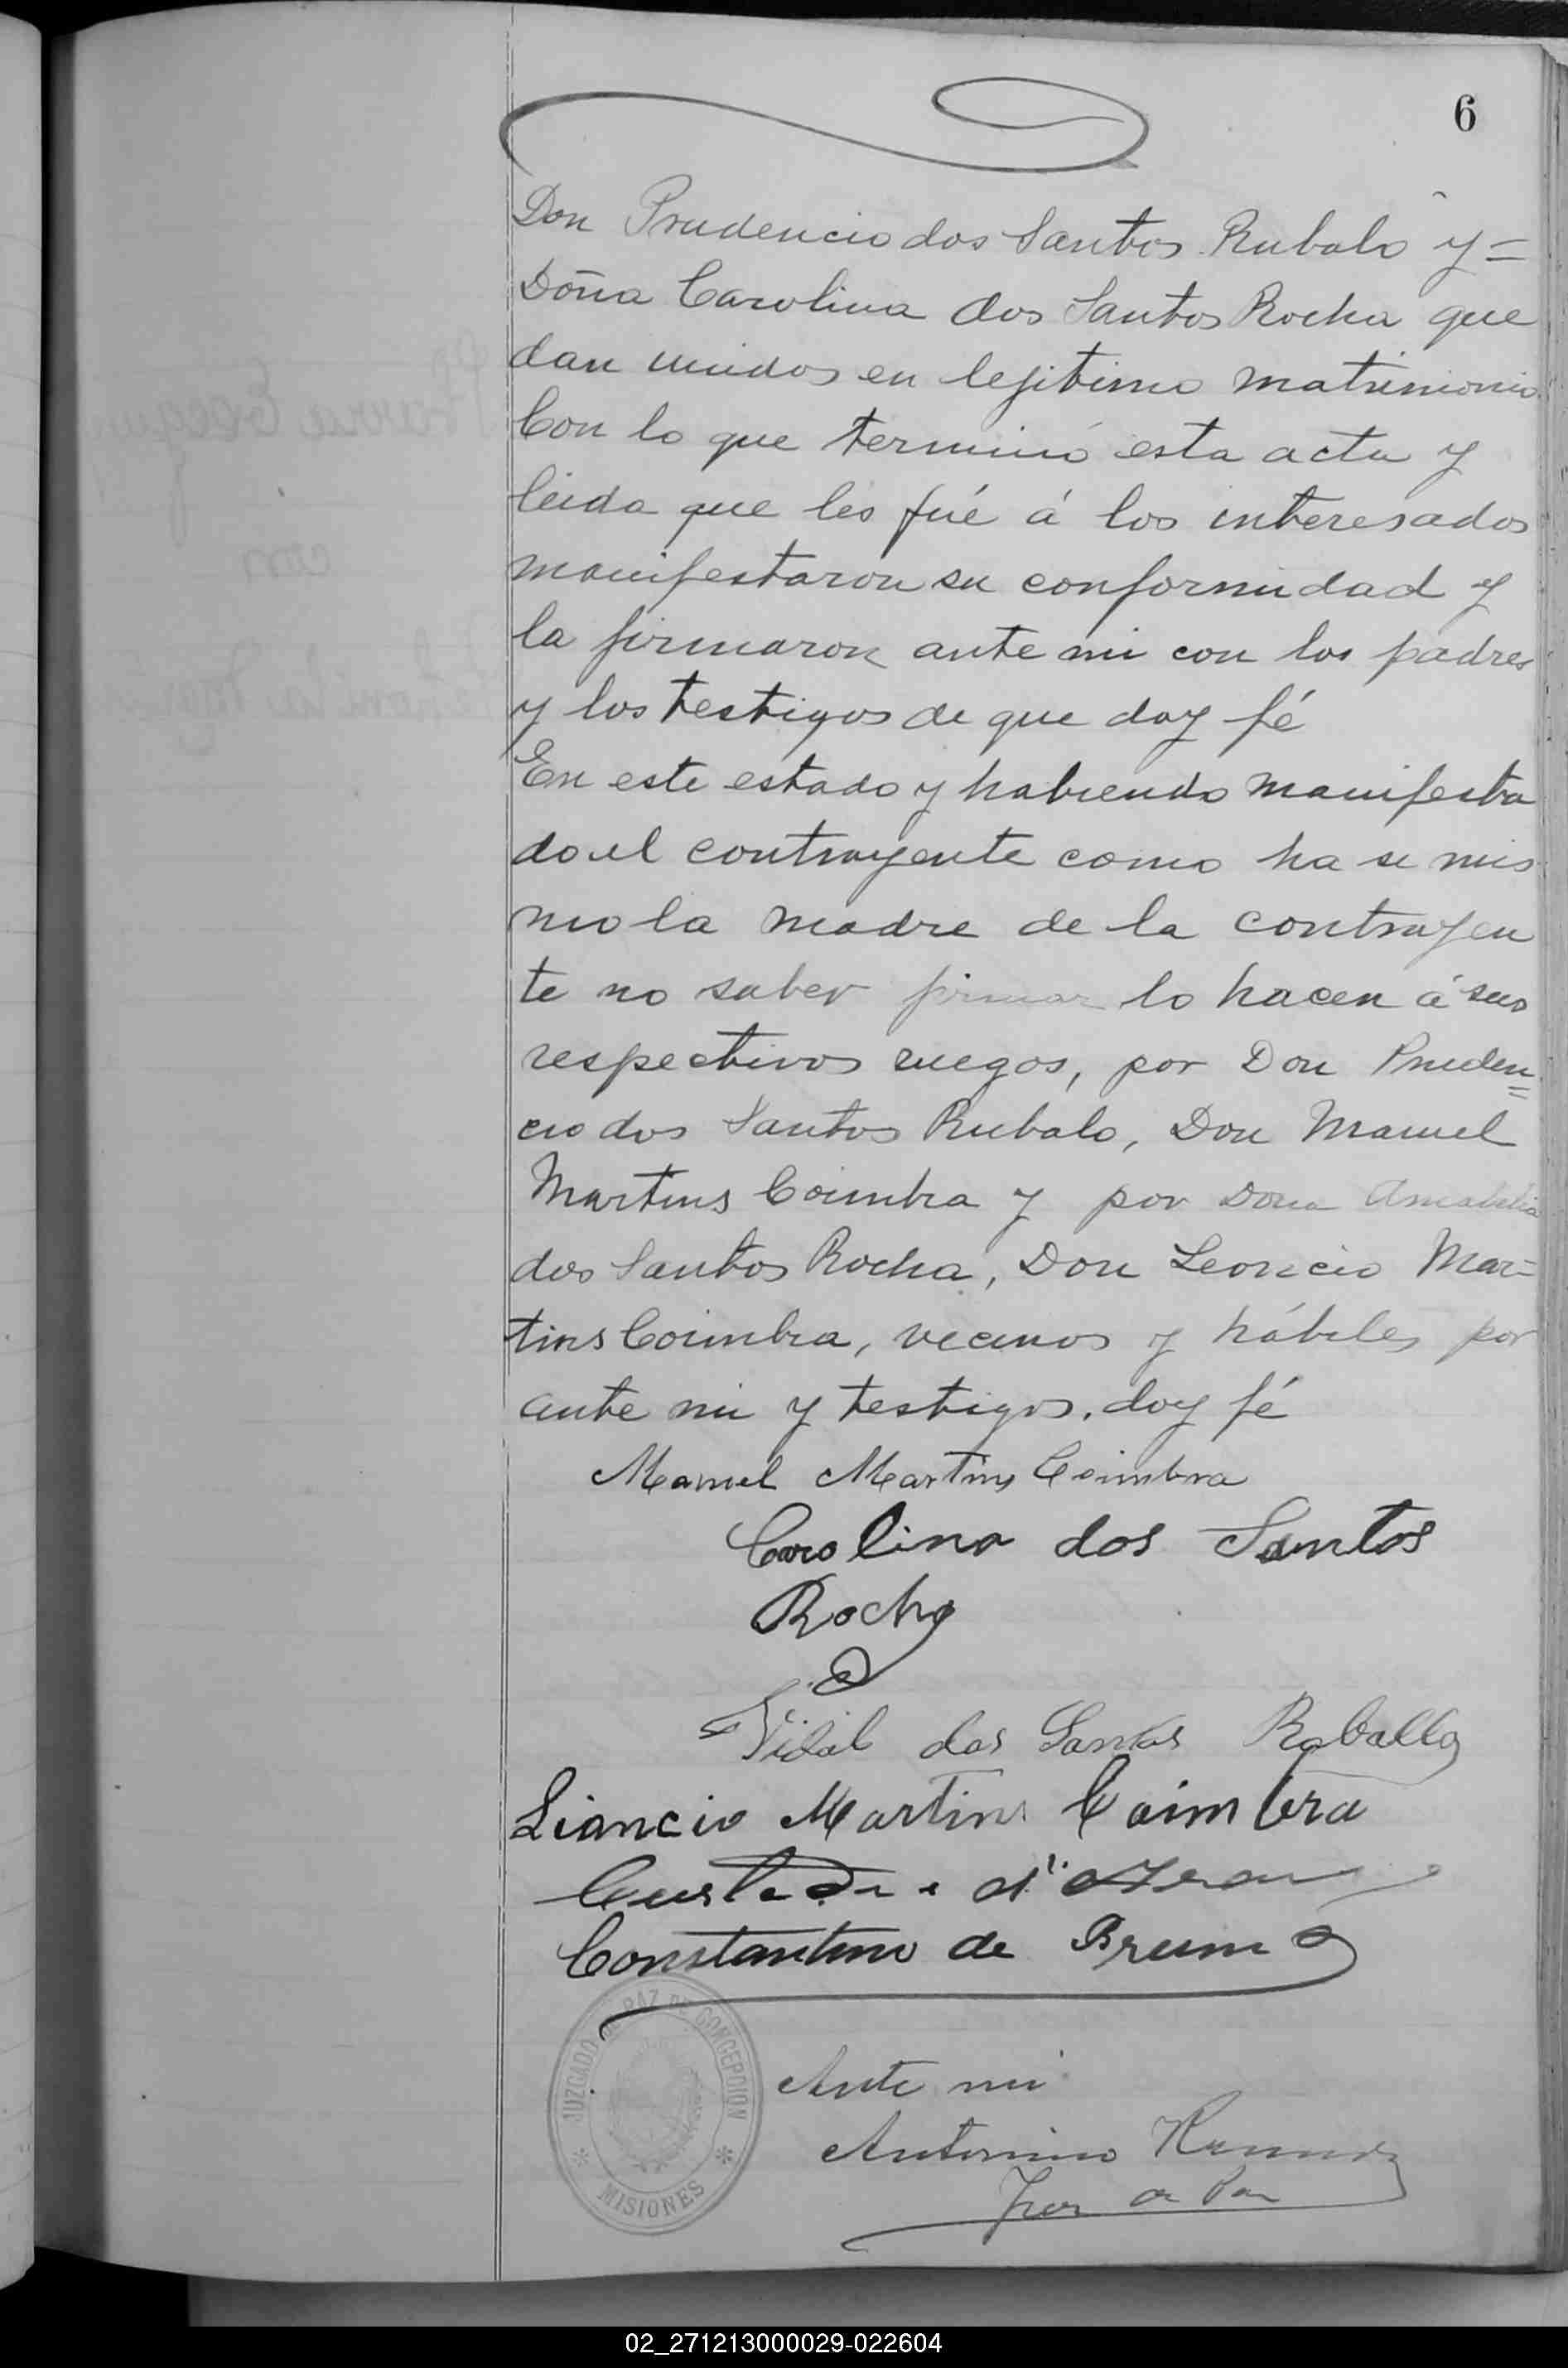 6
Don Prudencio dos Santos Rubalo y=
Doña Carolina dos Santos Rocha que
dan unidos en lejitimo matrimonio
Con lo que terminó esta acta y
leida que les fué á los interesados
manifestaron su conformidad y
la firmaron ante mi con los padres
y los testigos de que doy fé
En este estado y habiendo manifesta
do el contrayente como ha se mis
mo la madre de la contrayen
te no saber firmar lo hacen á sus
respectivos ruegos, por Don Pruden=
cio dos Santos Rubalo, Don Manuel
Martins Coimbra y por Dona Amabilia
dos Santos Rocha, Don Leoncio Mar=
tins Coimbra, vecinos y hábiles por
ante mi y testigos. doy fé
Manuel Martins Coimbra
Carolina dos Santos
Rocha
Vidal dos Santos Roballo
Liancio Martins Coimbra
Constantino de Brum
JUZGADO DE PAZ DE CONCEPCION
MISIONES
Ante mi
Antonino
Juez de Paz
02_271213000029-022604